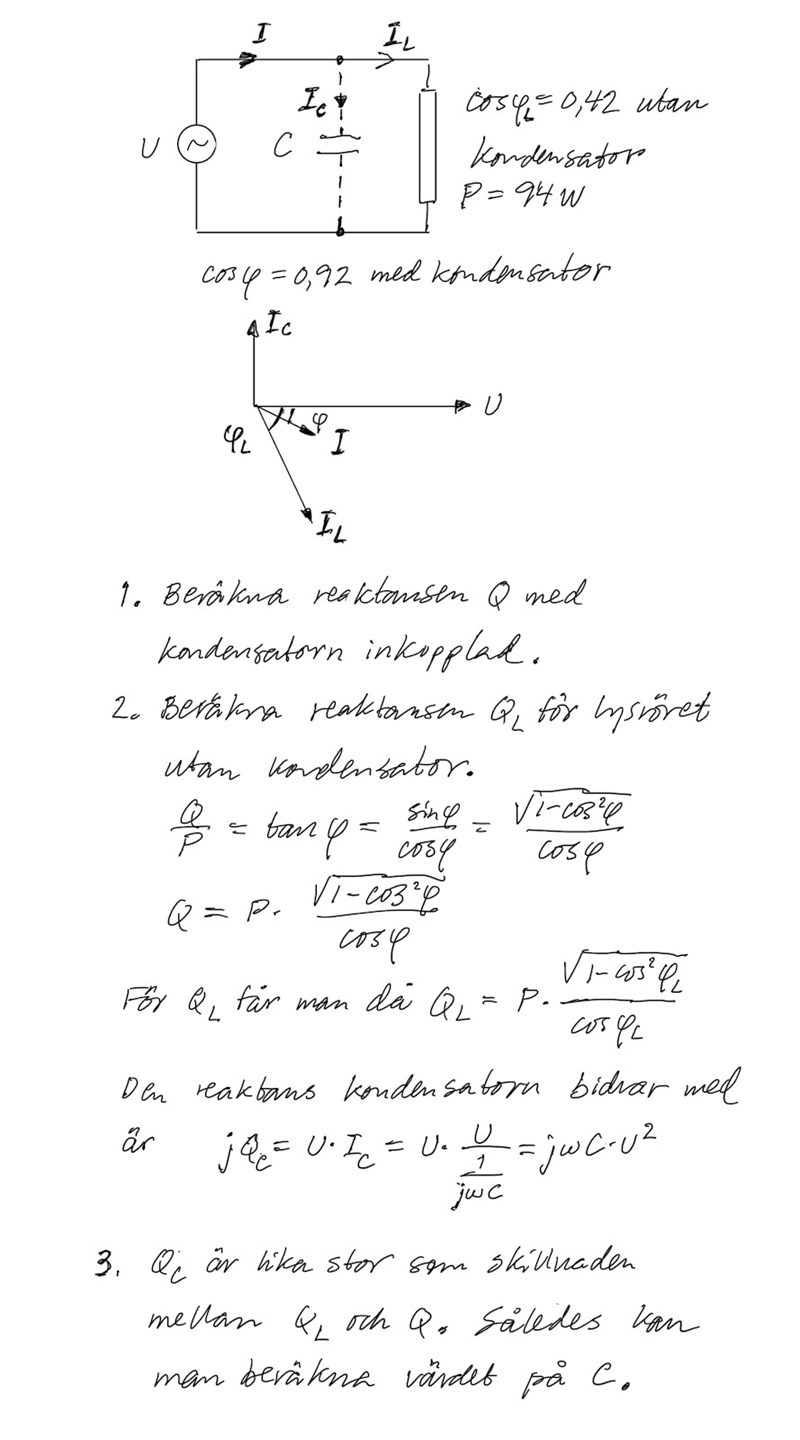 I I_L
I_C
U C
cosφ_L = 0,42 utan
kondensator
P = 94 W
cosφ = 0,92 med kondensator
I_C
U
φ
φ_L I
I_L
1. Beräkna reaktansen Q med
kondensatorn inkopplad.
2. Beräkna reaktansen Q_L för lysröret
utan kondensator.
Q/P = tan φ = sinφ/cosφ = √(1-cos²φ)/cosφ
Q = P · √(1-cos²φ)/cosφ
För Q_L får man då Q_L = P · √(1-cos²φ_L)/cosφ_L
Den reaktans kondensatorn bidrar med
är jQ_C = U · I_C = U · U/(1/jωC) = jωC · U²
3. Q_C är lika stor som skillnaden
mellan Q_L och Q. Således kan
man beräkna värdet på C.